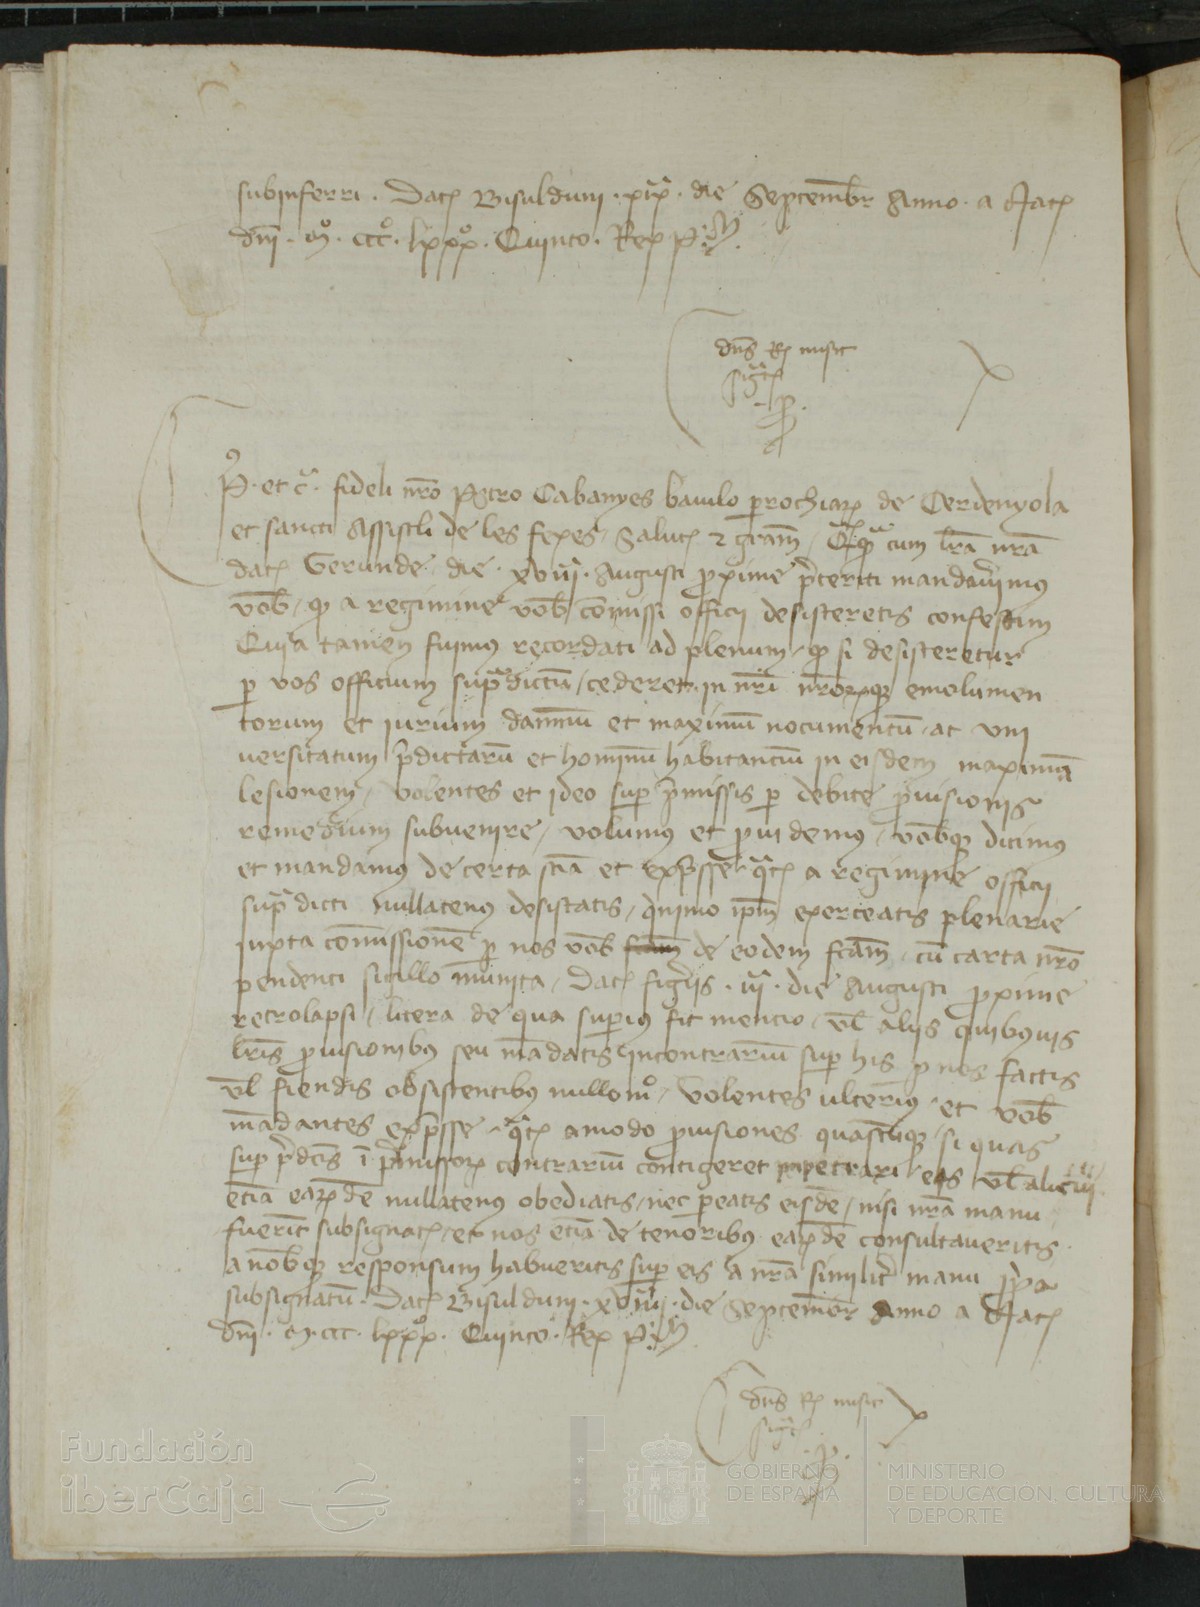 subinferri. Dat̃ Bisulduni .xix. die Septemb̃r Anno. a Nat̃
dñi. Mº. cccº. lxxxº. Quinto. Rex P.
dñs Rex misit
sigt̃
P. et c̃. fideli nr̃o Petro Cabanyes baiulo parrochiar̃ de Cerdenyola
et sancti Assiscli de les fexes, Salut̃ & gr̃am, cum lr̃a nr̃a
dat̃ Gerunde, die .xviii. Augusti proxime p̃teriti mandavimus
vob̃, qd a regimine vob̃ com̃issi officij desisteretis confestim
Quia tamen fuimus recordati ad plenum, qd si desisteretur
p vos officium supradictũ, cederet in nr̃i nr̃orumq; emolumen
torum et iurium dampnũ et maximũ nocumentũ, ac uni
versitatum p̃dictarũ et hominũ habitanciũ in eisdem maximã
lesionem, volentes et ideo sup p̃missis p debite provisionis
remedium subvenire, volumus et providemus, vob̃q; dicimus
et mandamus de certa scĩa et exp̃sse qt̃ a regimine officij
supradicti nullatenus desistatis, quinimo ip̃m exerceatis plenarie
juxta com̃issionẽ p nos vob̃ fcãm de eodem fcãm, cũ carta nr̃o
pendenti sigillo mũnita, Dat̃ figueriis .iii. die Augusti proxime
retrolapsi, litera de qua superius fit mencio, vl̃ aliis quibusvis
lr̃is provisionibus seu mãdatis incontrariũ sup his p nos factis
vl̃ fiendis obsistentibus nullomº, Volentes ulterius et vob̃
mãdantes exp̃sse, qt̃ amodo provisiones quascũq; si quas
sup p̃dc̃is ĩ p̃missor̃ contrariũ contigeret impetrari eas vl̃ alicui
etiã earum̃de nullatenus obediatis, nec pareatis eisdẽ, nisi nr̃a manu
fuerint subsignat̃, et nos etiã de tenoribus earum̃dẽ consultaveritis
a nob̃q; responsum habueritis sup eis a nr̃a similit̃ manu p̃pa
subsignatũ. Dat̃ Bisulduni .xviii. die Septemb̃r Anno a Nat̃
dñi. M. ccc. lxxxº. Quinto. Rex P.
dñs Rex misit
sigt̃
Fundación
iberCaja
GOBIERNO
DE ESPAÑA
MINISTERIO
DE EDUCACIÓN, CULTURA
Y DEPORTE